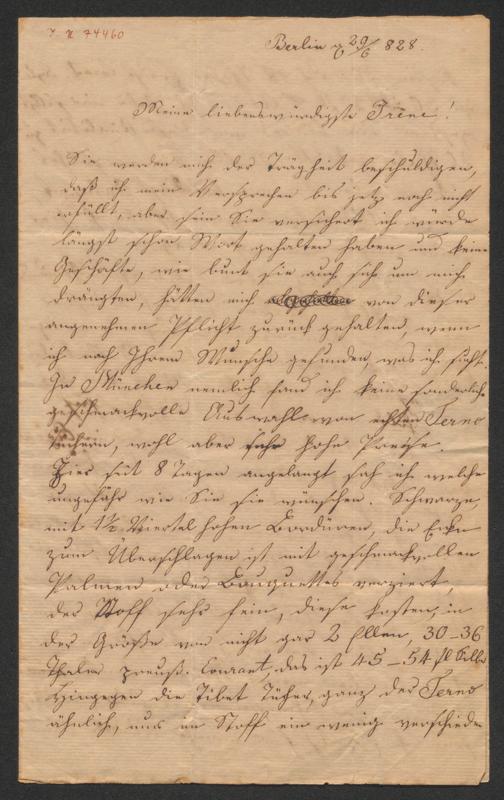 I N 74460
Berlin d 29/6 828.
Meine liebenswürdigste Irene!
Sie werden mich der Trägheit beschuldigen,
daß ich mein Versprechen bis jetzt noch nicht
erfüllt, aber sein Sie versichert ich würde
längst schon Wort gehalten haben und keine
Geschäfte, wie bunt sie auch sich um mich
drängten, hätten mich von dieser
angenehmen Pflicht zurück gehalten, wenn
ich nach Ihrem Wunsche gefunden, was ich suchte.
In München nemlich fand ich keine sonderlich
geschmackvolle Auswahl von echten Terno
tüchern, wohl aber sehr hohe Preise.
Hier seit 8 Tagen angelangt sah ich welche
ungefähr wie Sie sie wünschen. Schwarze,
mit 1½ Viertel hohen Bordüren, die Ecken
zum Überschlagen ist mit geschmackvollen
Palmen oder Bouquettes verziert,
der Stoff sehr fein, diese kosten, in
der Größe von nicht gar 2 Ellen, 30–36
Thaler preuß. Courant, das ist 45–54 fl Silber
Hingegen die Tibet Tücher, ganz der Terno
ähnlich, nur im Stoff ein wenig verschieden